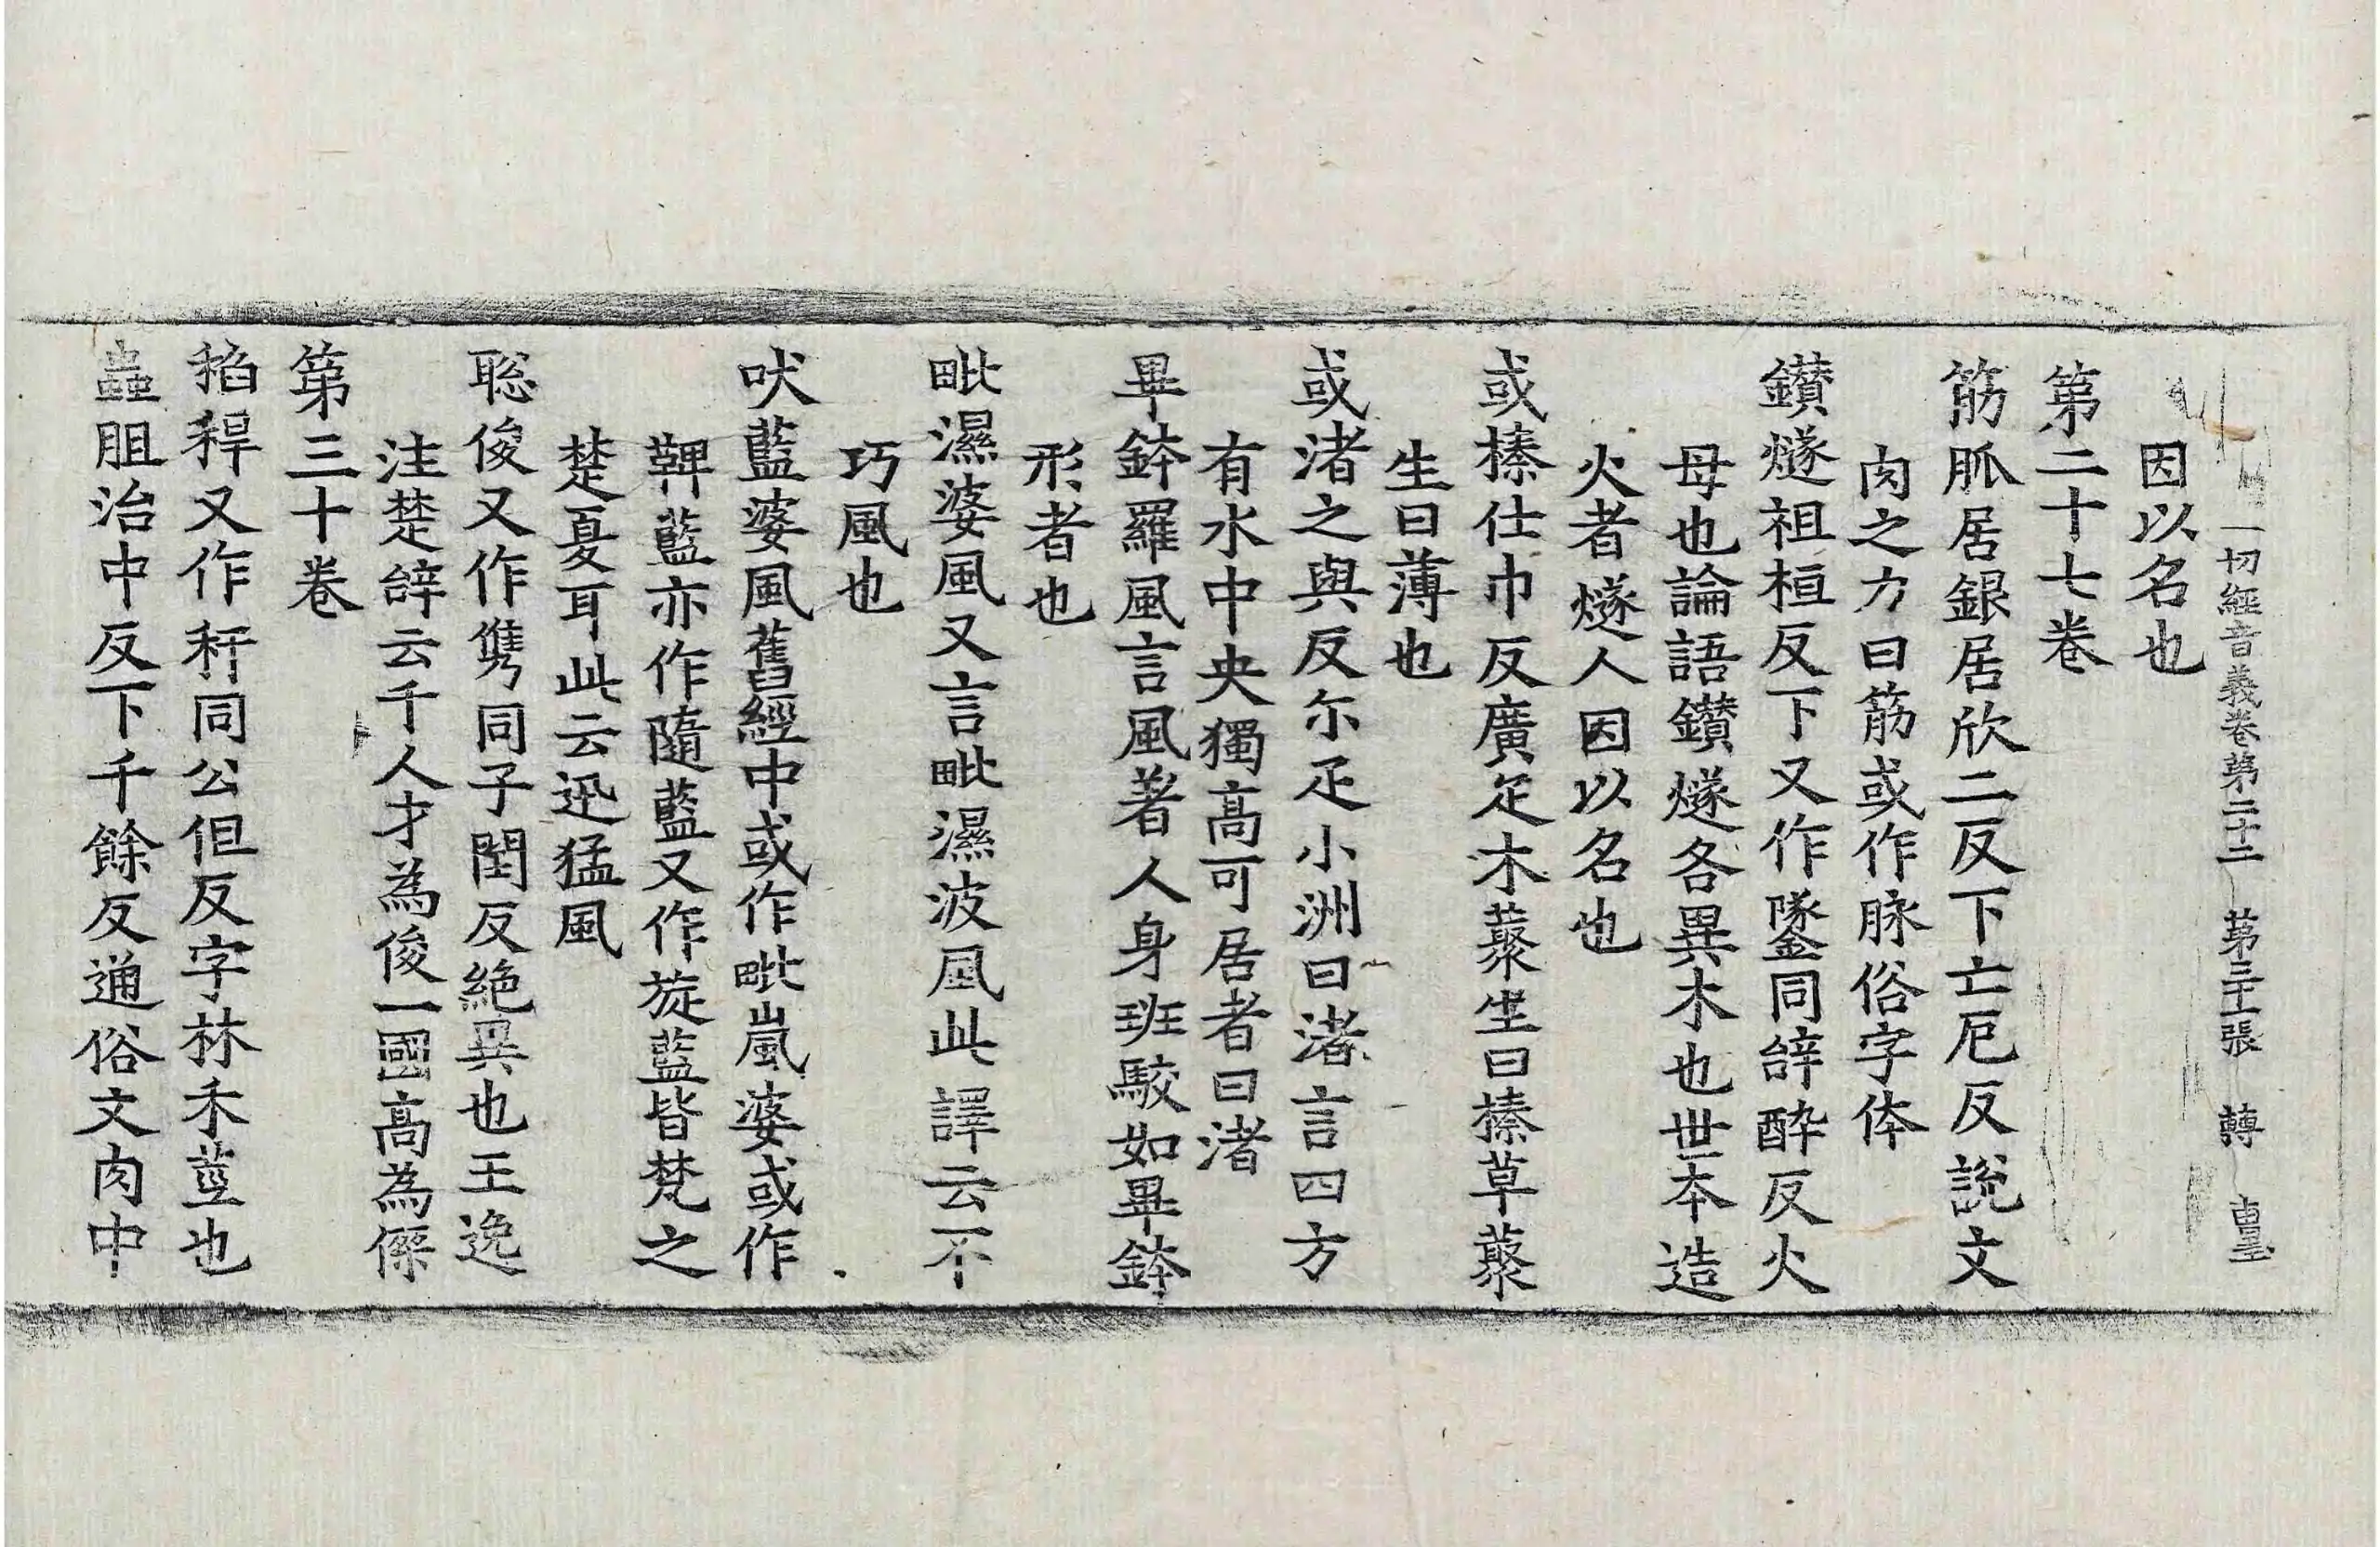 一切經音義卷第二十二 第三十張 轉
因以名也
第二十七卷
筋脈居銀居欣二反下亡厄反說文
肉之力曰筋或作脉俗字体
鑚燧祖桓反下又作鐆同辝醉反火
母也論語鑚燧各異木也世本造
火者燧人因以名也
或榛仕巾反廣疋木藂生曰榛草藂
生曰薄也
或渚之與反尓疋小洲曰渚言四方
有水中央獨高可居者曰渚
畢鉢羅風言風著人身班駮如畢鉢
形者也
毗濕婆風又言毗濕波風此譯云不
巧風也
吠藍婆風舊經中或作毗嵐婆或作
鞞藍亦作隨藍又作旋藍皆梵之
楚夏耳此云迅猛風
聡俊又作㑺同子閏反絶異也王逸
注楚辝云千人才為俊一國髙為傑
第三十卷
稻稈又作秆同公但反字林禾莖也
蟲胆治中反下千餘反通俗文肉中